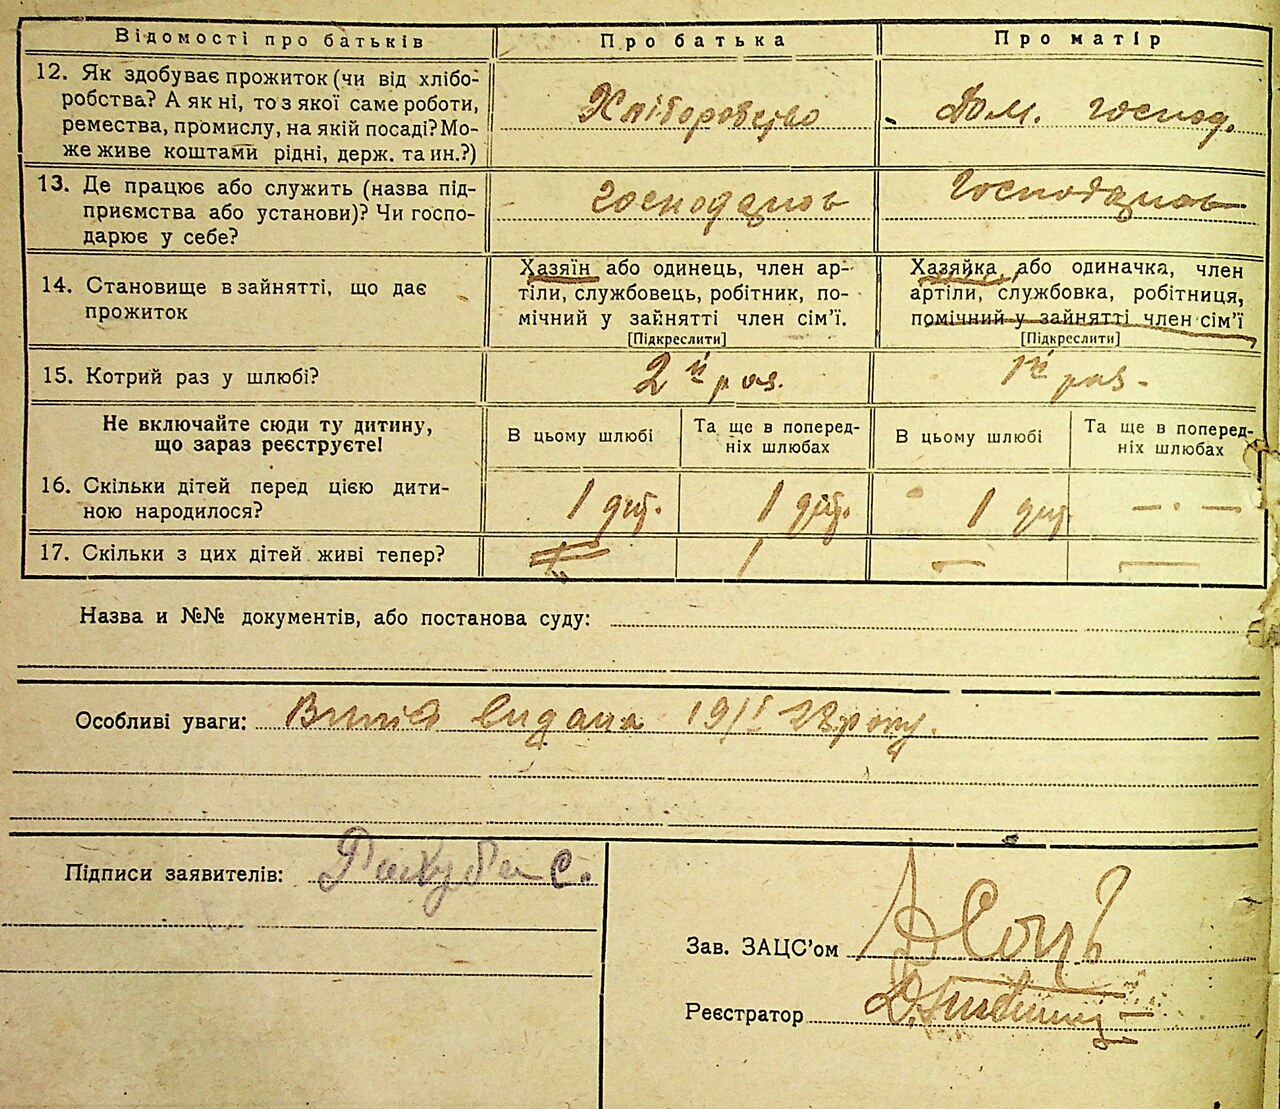 Відомості про батьків Про батька Про матір
12. Як здобуває прожиток (чи від хлібо-
робства? А як ні, то з якої саме роботи,
ремества, промислу, на якій посаді? Мо-
же живе коштами рідні, держ. та ин.?)
Хліборобство
Дом. господ.
13. Де працює або служить (назва під-
приємства або установи)? Чи госпо-
дарює у себе?
14. Становище в зайнятті, що дає
прожиток
Хазяїн або одинець, член ар-
тіли, службовець, робітник, по-
мічний у зайнятті член сім'ї.
[Підкреслити]
Хазяйка, або одиначка, член
артіли, службовка, робітниця,
помічний у зайнятті член сім'ї
[Підкреслити]
15. Котрий раз у шлюбі?
2й раз.
1й раз.
Не включайте сюди ту дитину,
що зараз реєструєте!
В цьому шлюбі
Та ще в поперед-
ніх шлюбах
В цьому шлюбі
Та ще в поперед-
ніх шлюбах
16. Скільки дітей перед цією дити-
ною народилося?
1 дит. 1 дит. 1 дит. — . —
17. Скільки з цих дітей живі тепер?
1 — —
Назва и №№ документів, або постанова суду:
Особливі уваги: видана
Підписи заявителів: С.
Зав. ЗАЦС'ом
Реєстратор